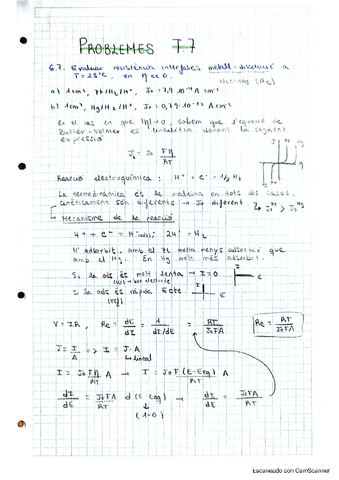 PROBLEMES T.7
6.7. Evaluar resistència interfases metall-dissolució a
T=25ºC, en η≪0. electrode (Re)
a) 1cm², Pt/H₂/H⁺, J₀ = 7,9·10⁻⁴ A cm⁻²
b) 1cm², Hg/H₂/H⁺, J₀ = 0,79·10⁻¹² A cm⁻²
En el cas en que |η|→0, sabem que l'equació de
Butler-Volmer es linealitza donant la següent
expressió
J = J₀ Fη/RT
Reacció electroquímica: H⁺ + e⁻ = 1/2 H₂
La termodinàmica és la mateixa en tots dos casos.
Cinèticament són diferents → J₀ diferent. J₀ᴾᵗ > J₀ᴴᵍ
Mecanisme de la reacció
H⁺ + e⁻ = H(ads); 2H = H₂
H adsorbit, amb el Pt molta menys adsorció que
amb el Hg. En Hg molt més adsorbit.
Si la ads és molt lenta → I=0
Si la ads és ràpida E cte.
I E
I E
V = IR, Re = dE/dI = 1/(dI/dE) = RT/J₀FA
Re = RT/J₀FA
J = I/A => I = J·A
lineal
I = J₀ Fη/RT A → I = J₀ F(E-Eeq)/RT A
dI/dE = J₀FA/RT d(E-Eeq) → dI/dE = J₀FA/RT
(1-0)
Escaneado con CamScanner